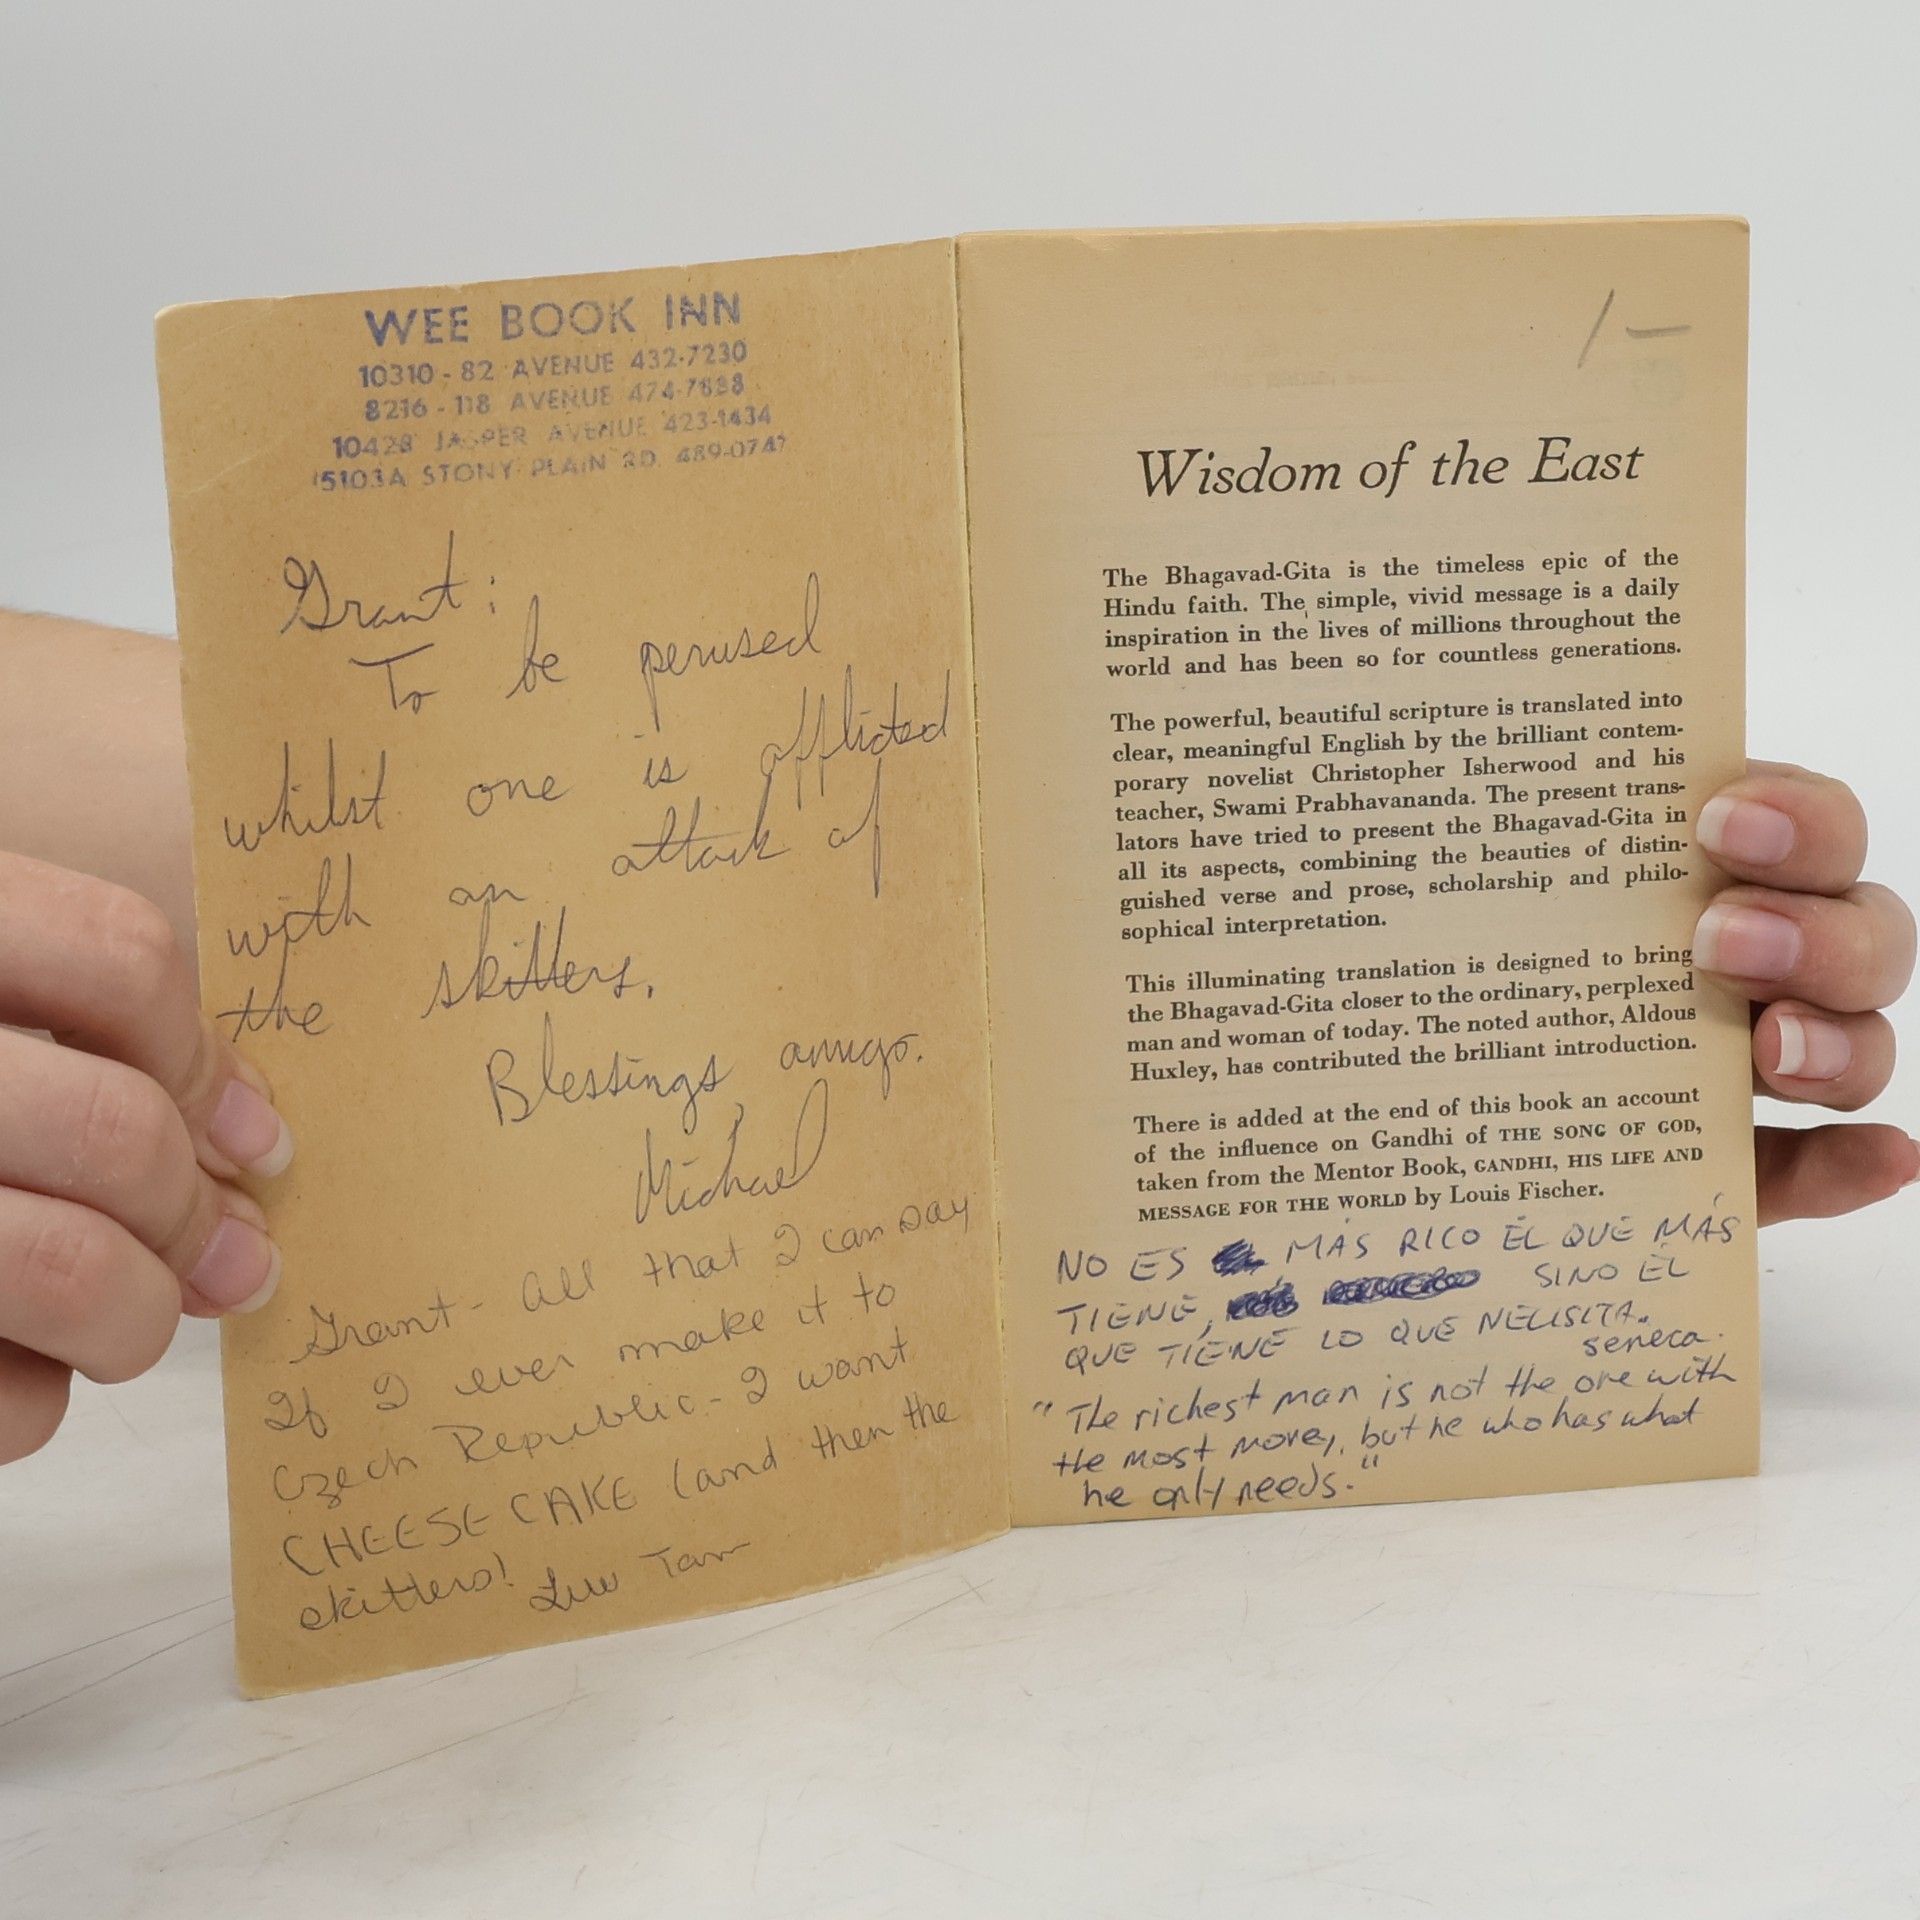 WEE BOOK INN
10310 - 82 AVENUE 432-7230
8216 - 118 AVENUE 474-7888
10428 JASPER AVENUE 423-1434
15103A STONY PLAIN RD. 489-0747
Grant:
To be perused
whilst one is afflicted
with an attack of
the skitters.
Blessings, amigo.
Michael
Grant - All that I can say
If I ever make it to
Czech Republic - I want
CHEESECAKE (and then the
skitters!
Tam
/ -
Wisdom of the East
The Bhagavad-Gita is the timeless epic of the
Hindu faith. The simple, vivid message is a daily
inspiration in the lives of millions throughout the
world and has been so for countless generations.
The powerful, beautiful scripture is translated into
clear, meaningful English by the brilliant contem-
porary novelist Christopher Isherwood and his
teacher, Swami Prabhavananda. The present trans-
lators have tried to present the Bhagavad-Gita in
all its aspects, combining the beauties of distin-
guished verse and prose, scholarship and philo-
sophical interpretation.
This illuminating translation is designed to bring
the Bhagavad-Gita closer to the ordinary, perplexed
man and woman of today. The noted author, Aldous
Huxley, has contributed the brilliant introduction.
There is added at the end of this book an account
of the influence on Gandhi of THE SONG OF GOD,
taken from the Mentor Book, GANDHI, HIS LIFE AND
MESSAGE FOR THE WORLD by Louis Fischer.
NO ES MÁS RICO ÉL QUE MÁS
TIENE, SINO ÉL
QUE TIENE LO QUE NECISITA.
seneca.
"The richest man is not the one with
the most money, but he who has what
he only needs."